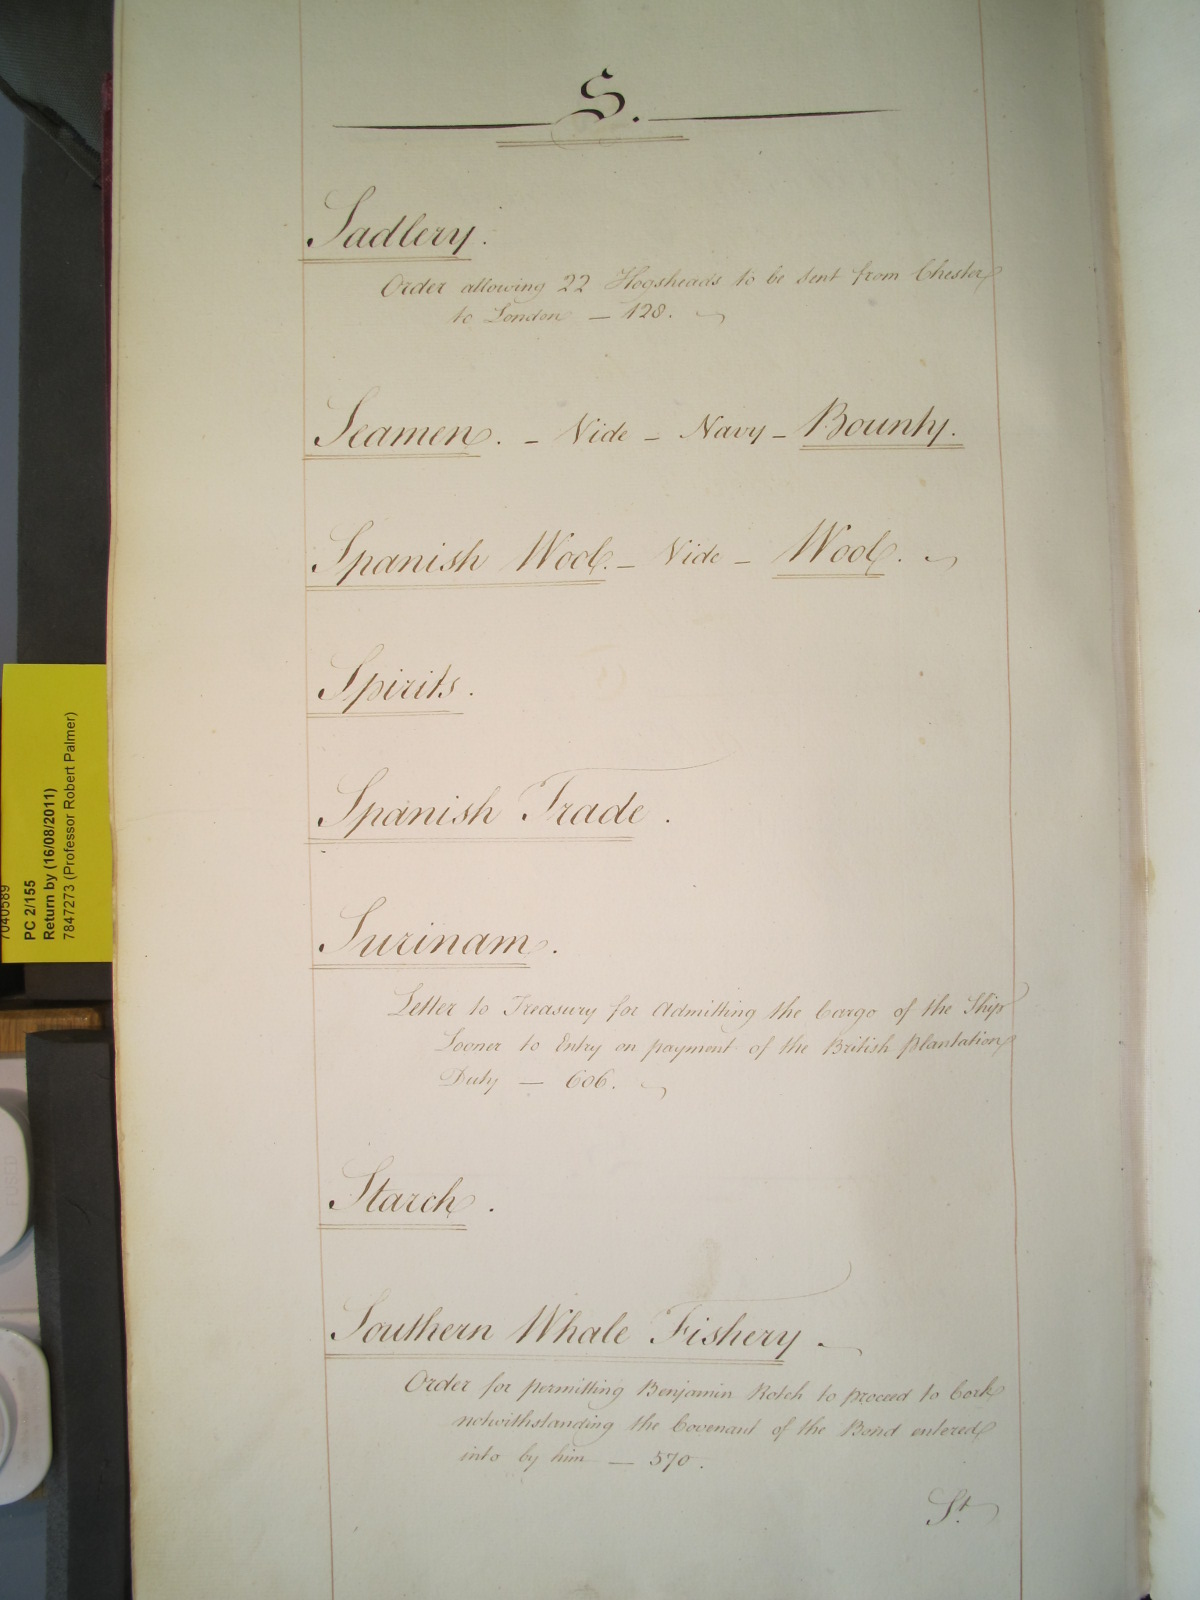 S.
Sadlery.
Order allowing 22 Hogsheads to be sent from Chester
to London — 128.
Seamen. – Vide – Navy – Bounty.
Spanish Wool. – Vide – Wool.
Spirits.
Spanish Trade.
Surinam.
Letter to Treasury for Admitting the Cargo of the Ship
to Entry on payment of the British Plantation
Duty — 606.
Starch.
Southern Whale Fishery.
Order for permitting Benjamin Rotch to proceed to Cork
notwithstanding the Covenant of the Bond entered
into by him — 570.
St.
7040589
PC 2/155
Return by (16/08/2011)
7847273 (Professor Robert Palmer)